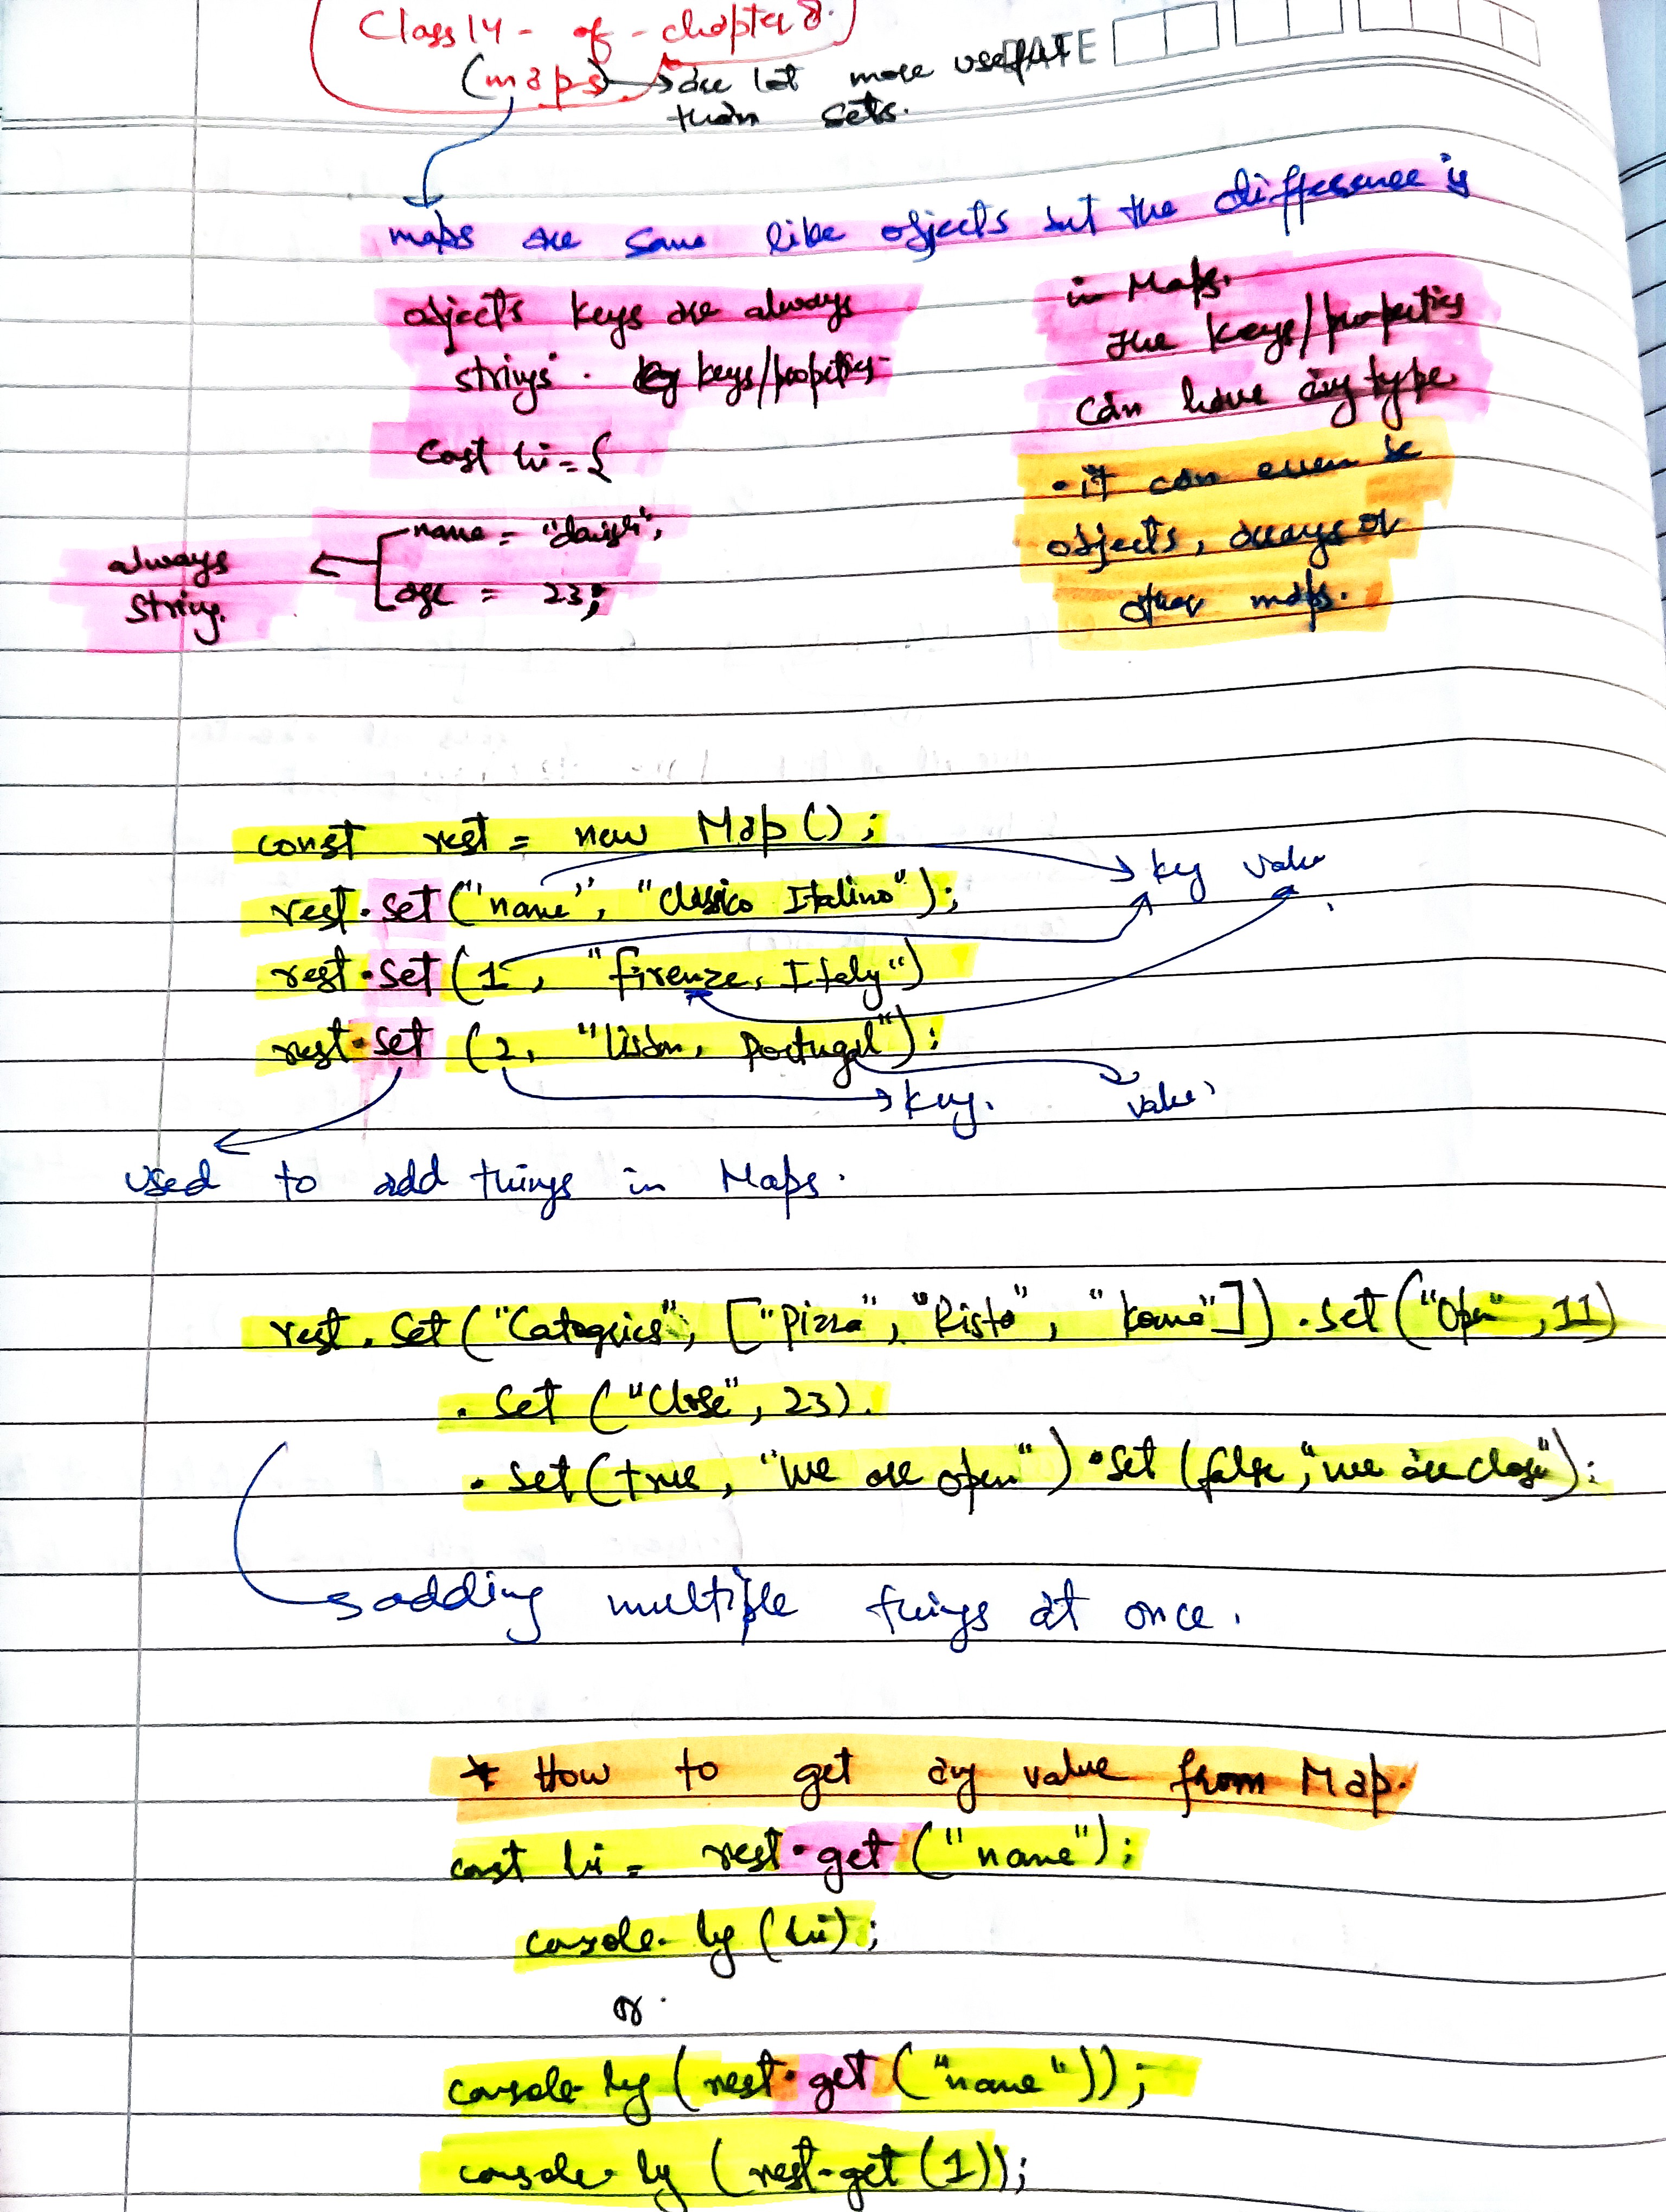 Class 14 - of - chapter 8.
DATE
(maps) → are lot more useful
than sets.
maps are same like objects but the difference is
objects keys are always
strings. keys/propeties
in Maps.
the keys/properties
can have any type
• it can even be
objects, arrays or
other maps.
Cost hi = {
name = "danish",
age = 23;
always
string.
const rest = new Map();
rest.set("name", "Classico Italino");
key value
rest.set(1, "firenze, Italy")
rest.set (2, "lisbn, Portugal");
key. value.
used to add things in Maps.
rest.set("Categories", ["Pizza", "Risto", "]).set("Open", 11)
.set ("Close", 23).
.set(true, "we are open").set(false, "we are close");
adding multiple things at once.
* How to get any value from Map.
const hi = rest.get("name");
console.log(hi);
or.
console.log(rest.get("name"));
console.log(rest.get(1));